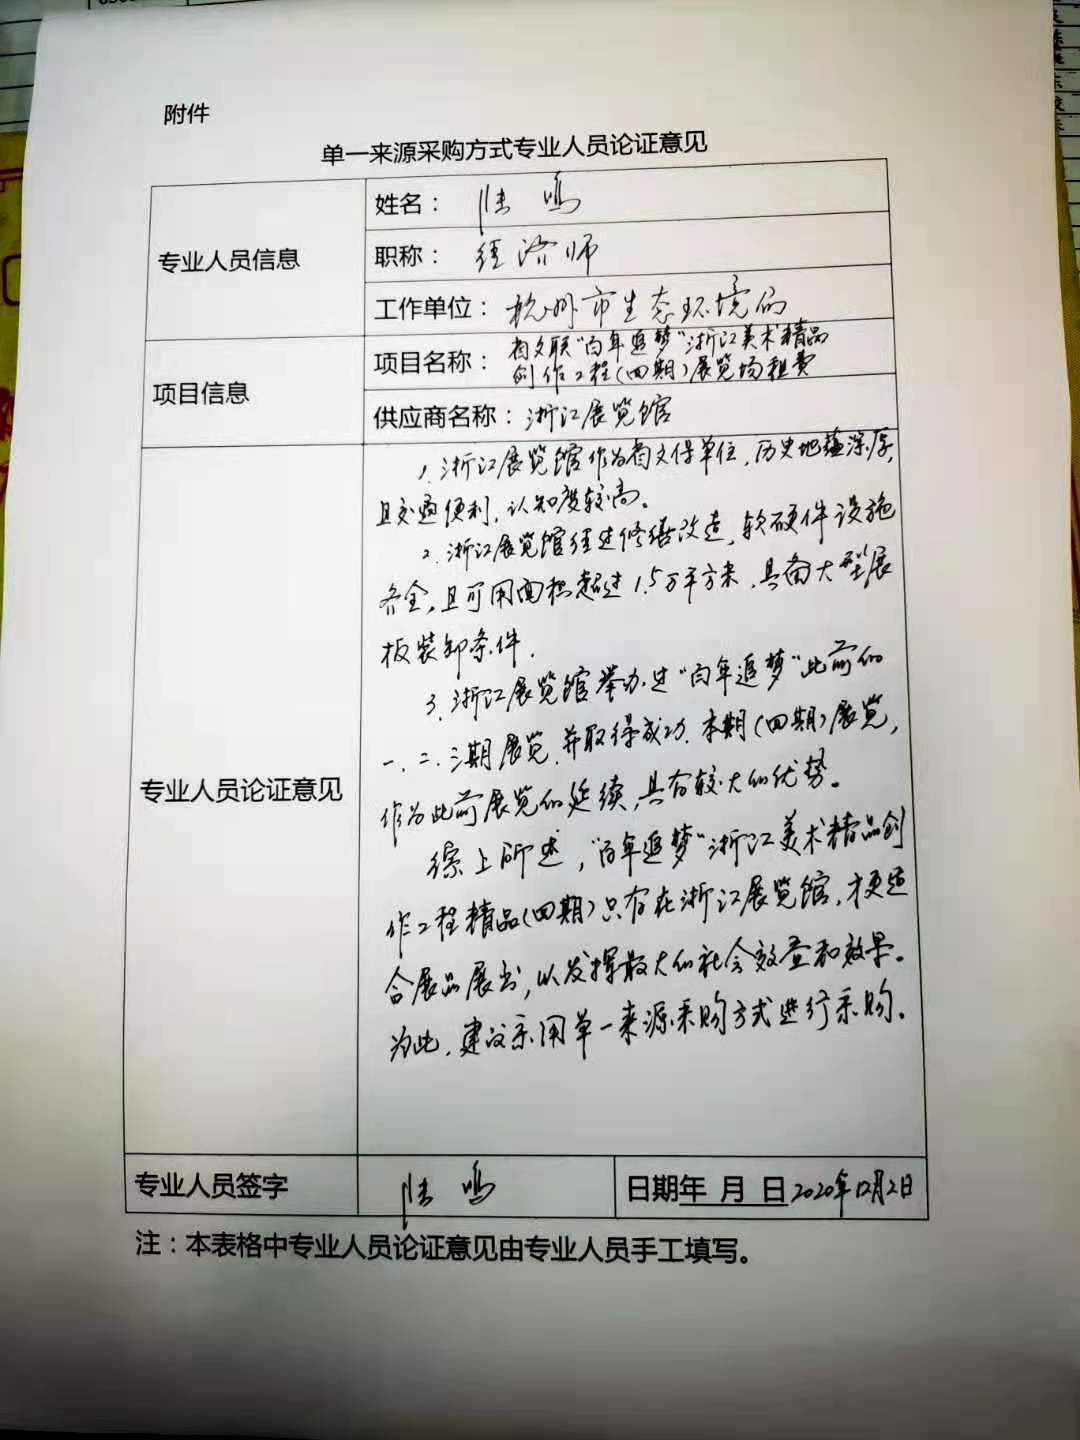 附件
单一来源采购方式专业人员论证意见
专业人员信息
姓名：陆鸣
职称：经济师
工作单位：杭州市生态环境局
项目信息
项目名称：省文联“百年追梦”浙江美术精品
创作工程(四期)展览场租费
供应商名称：浙江展览馆
专业人员论证意见
1.浙江展览馆作为省文保单位,历史地蕴深厚,
且交通便利,认知度较高。
2.浙江展览馆经过修缮改造,软硬件设施
齐全,且可用面积超过1.5万平方米,具备大型展
板装卸条件.
3.浙江展览馆举办过“百年追梦”此前的
一、二、三期展览,并取得成功.本期(四期)展览,
作为此前展览的延续,具有较大的优势。
综上所述,“百年追梦”浙江美术精品创
作工程精品(四期)只有在浙江展览馆,才更适
合展品展出,以发挥最大的社会效益和效果。
为此,建议采用单一来源采购方式进行采购。
专业人员签字
陆鸣
日期年 月 日 2020年12月2日
注：本表格中专业人员论证意见由专业人员手工填写。